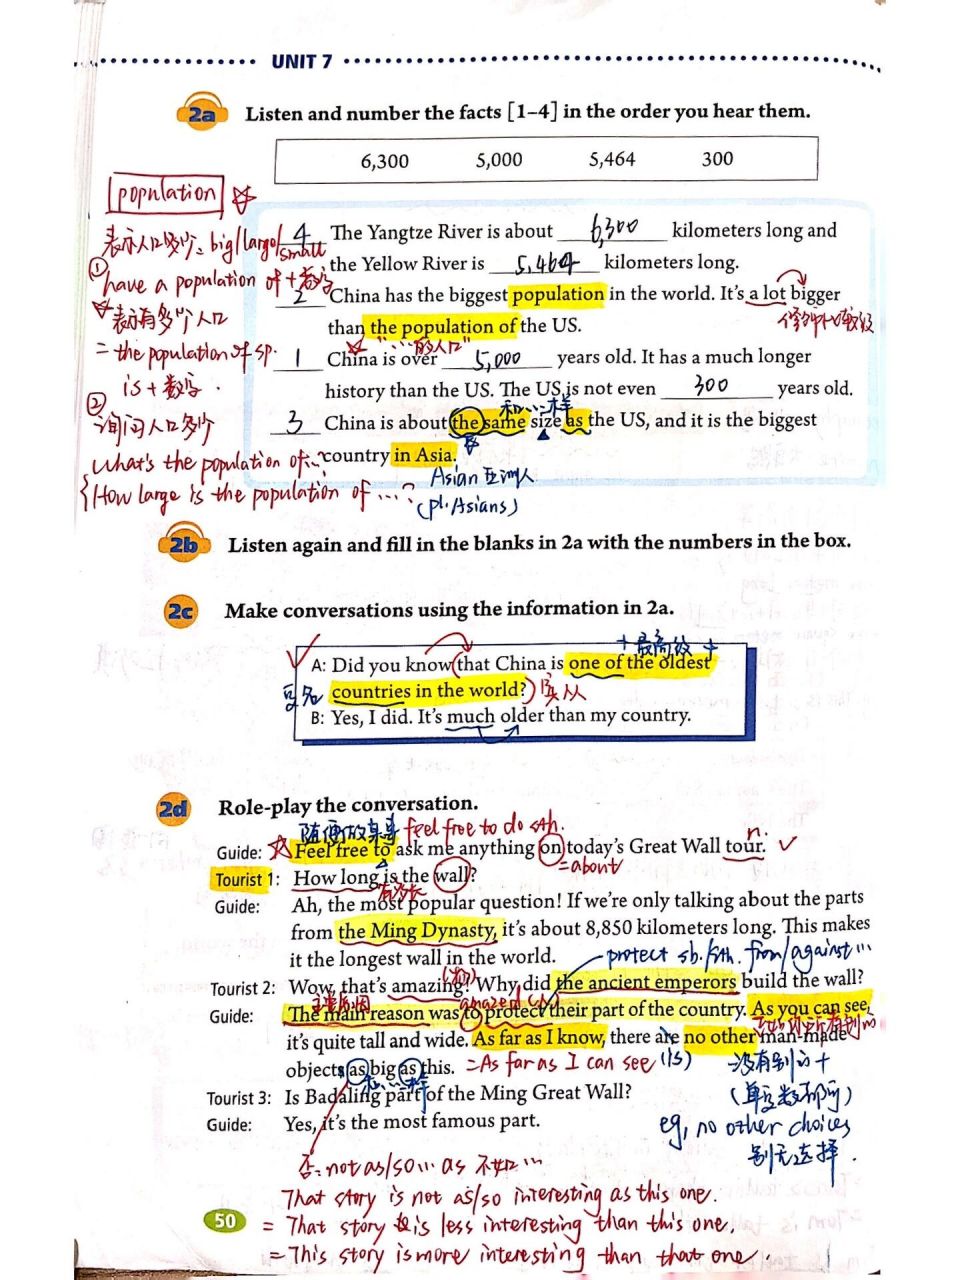 UNIT 7
2a Listen and number the facts [1–4] in the order you hear them.
6,300 5,000 5,464 300
population
表示人口多少: big/large/small
① have a population of + 数字
表示有多少个人口
= the population of sp.
is + 数字.
② 询问人口多少
What's the population of...?
How large is the population of ...?
4 The Yangtze River is about 6,300 kilometers long and
the Yellow River is 5,464 kilometers long.
2 China has the biggest population in the world. It's a lot bigger
修饰比较级
than the population of the US.
"……的人口"
1 China is over 5,000 years old. It has a much longer
history than the US. The US is not even 300 years old.
和……一样
3 China is about the same size as the US, and it is the biggest
country in Asia.
Asian 亚洲人
(pl. Asians)
2b Listen again and fill in the blanks in 2a with the numbers in the box.
2c Make conversations using the information in 2a.
+ 最高级 +
A: Did you know (that China is one of the oldest
countries in the world?) 宾从
B: Yes, I did. It's much older than my country.
2d Role-play the conversation.
随便做某事 feel free to do sth.
n.
Guide: Feel free to ask me anything on today's Great Wall tour.
=about
Tourist 1: How long is the wall?
有多长
Guide: Ah, the most popular question! If we're only talking about the parts
from the Ming Dynasty, it's about 8,850 kilometers long. This makes
it the longest wall in the world.
protect sb./sth. from/against ...
(物)
Tourist 2: Wow, that's amazing! Why did the ancient emperors build the wall?
主要原因 amazed (人)
Guide: The main reason was to protect their part of the country. As you can see,
it's quite tall and wide. As far as I know, there are no other man-made
objects as big as this. =As far as I can see (is)
和……一样
=没有别的 +
(单复数都可)
eg, no other choices
别无选择.
Tourist 3: Is Badaling part of the Ming Great Wall?
Guide: Yes, it's the most famous part.
否: not as/so ... as 不如...
That story is not as/so interesting as this one.
= That story is less interesting than this one.
= This story is more interesting than that one.
50